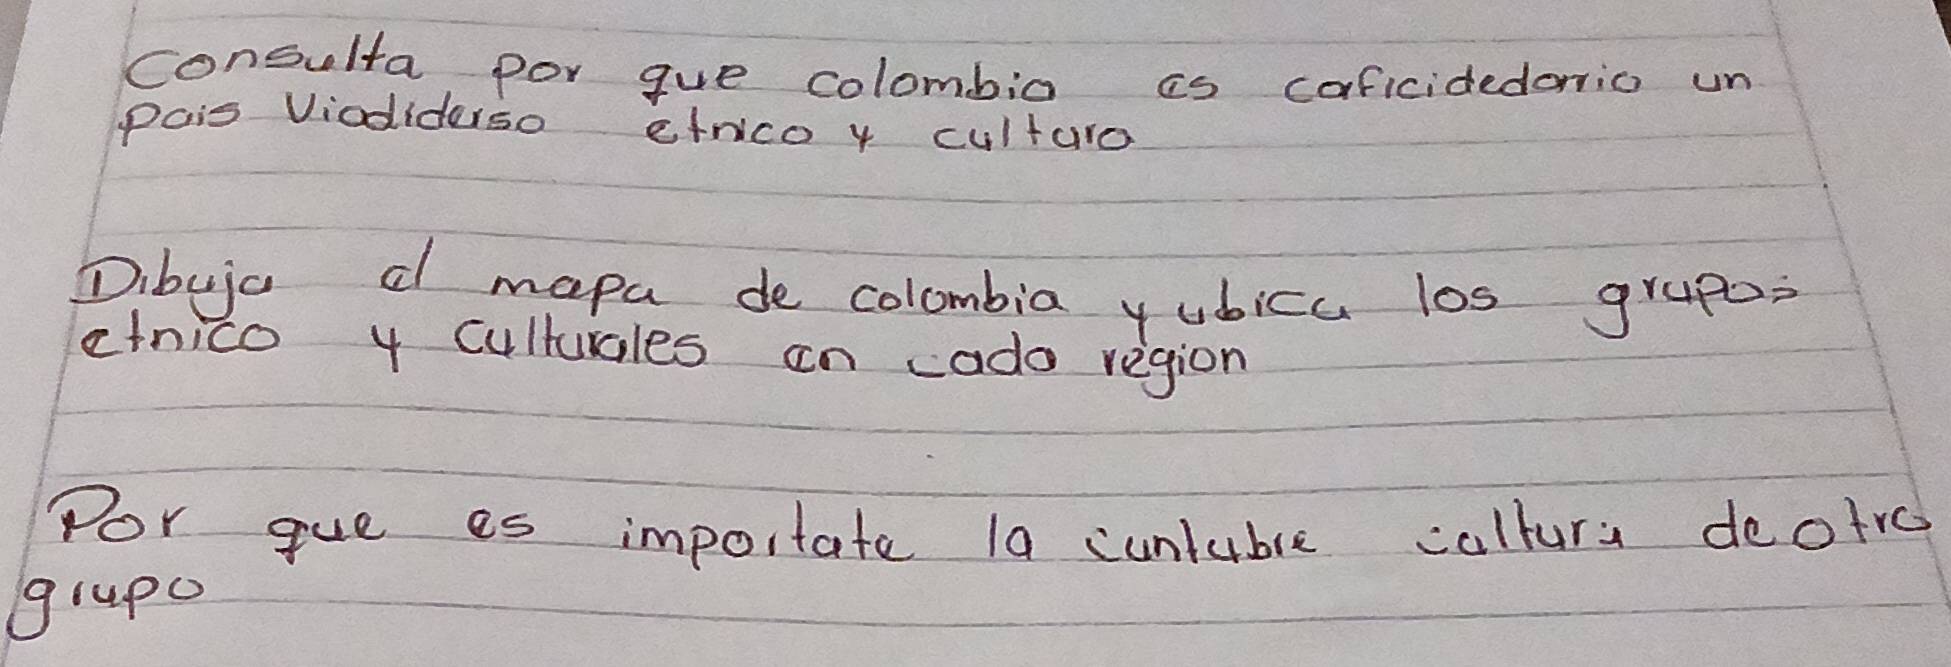 Consulta por que colombia es caficidedonio un
pais Viodiderso etnico y cultura
Dibuja el mapa de colombia y ubica los grupos
etnico y culturales en cada region
Por que es importate la cuntubre cultura de otro
grupo